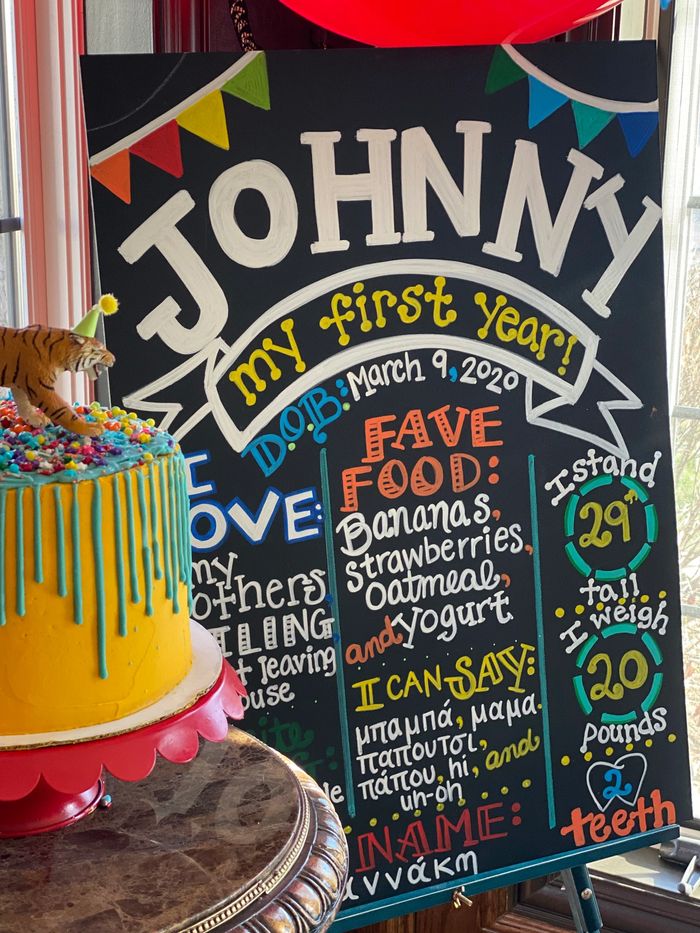 JOHNNY
my first year!
DOB: March 9, 2020
I
OVE:
my
others
ILING
t leaving
ouse
FAVE
FOOD:
Bananas,
strawberries,
oatmeal,
and yogurt
II CAN SAY:
μπαμπά, μαμα
παπουτσι,
πάπου, hi, and
uh-oh
NAME:
αννάκη
I stand
29"
tall
I weigh
20
pounds
2
teeth